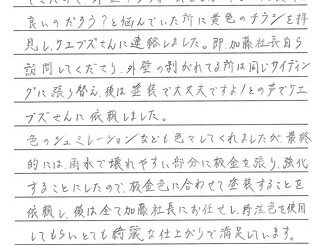 良いのだろう?と悩んでいた所に黄色のチラシを拝
見し、ケエプズさんに連絡しました。即、加藤社長自ら
訪問してくださり、外壁の剥がれてる所は同じサイディン
グに張り替え、後は塗装で大丈夫ですよ!との声でケエ
プズさんに依頼しました。
色のシュミレーションなども色々してくれましたが、最終
的には、雨水で壊れやすい部分に板金を張り、強化
することにしたので、板金色に合わせて塗装することを
依頼し、後は全て加藤社長にお任せし、特注色を使用
してもらいとても綺麗な仕上がりで満足しています。